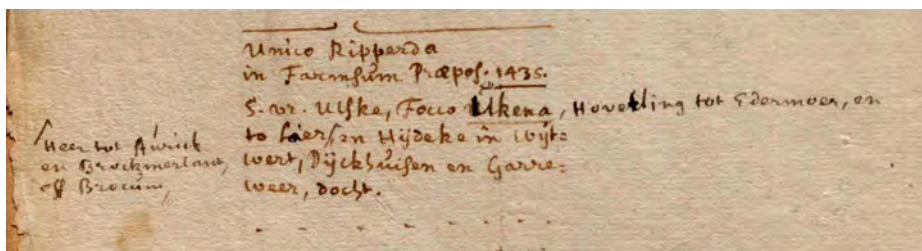 Unico Ripperda
in Farmsum Præpos. 1435.
S. vr. Ulske, Focco Ukena, Hoveling tot Edermoer, en
to Lier, en Hijdeke in Wijt=
wert, Dijckhuisen en Garre=
weer, docht.
Heer tot Aurick
en Brockmerlant,
off Brocum,